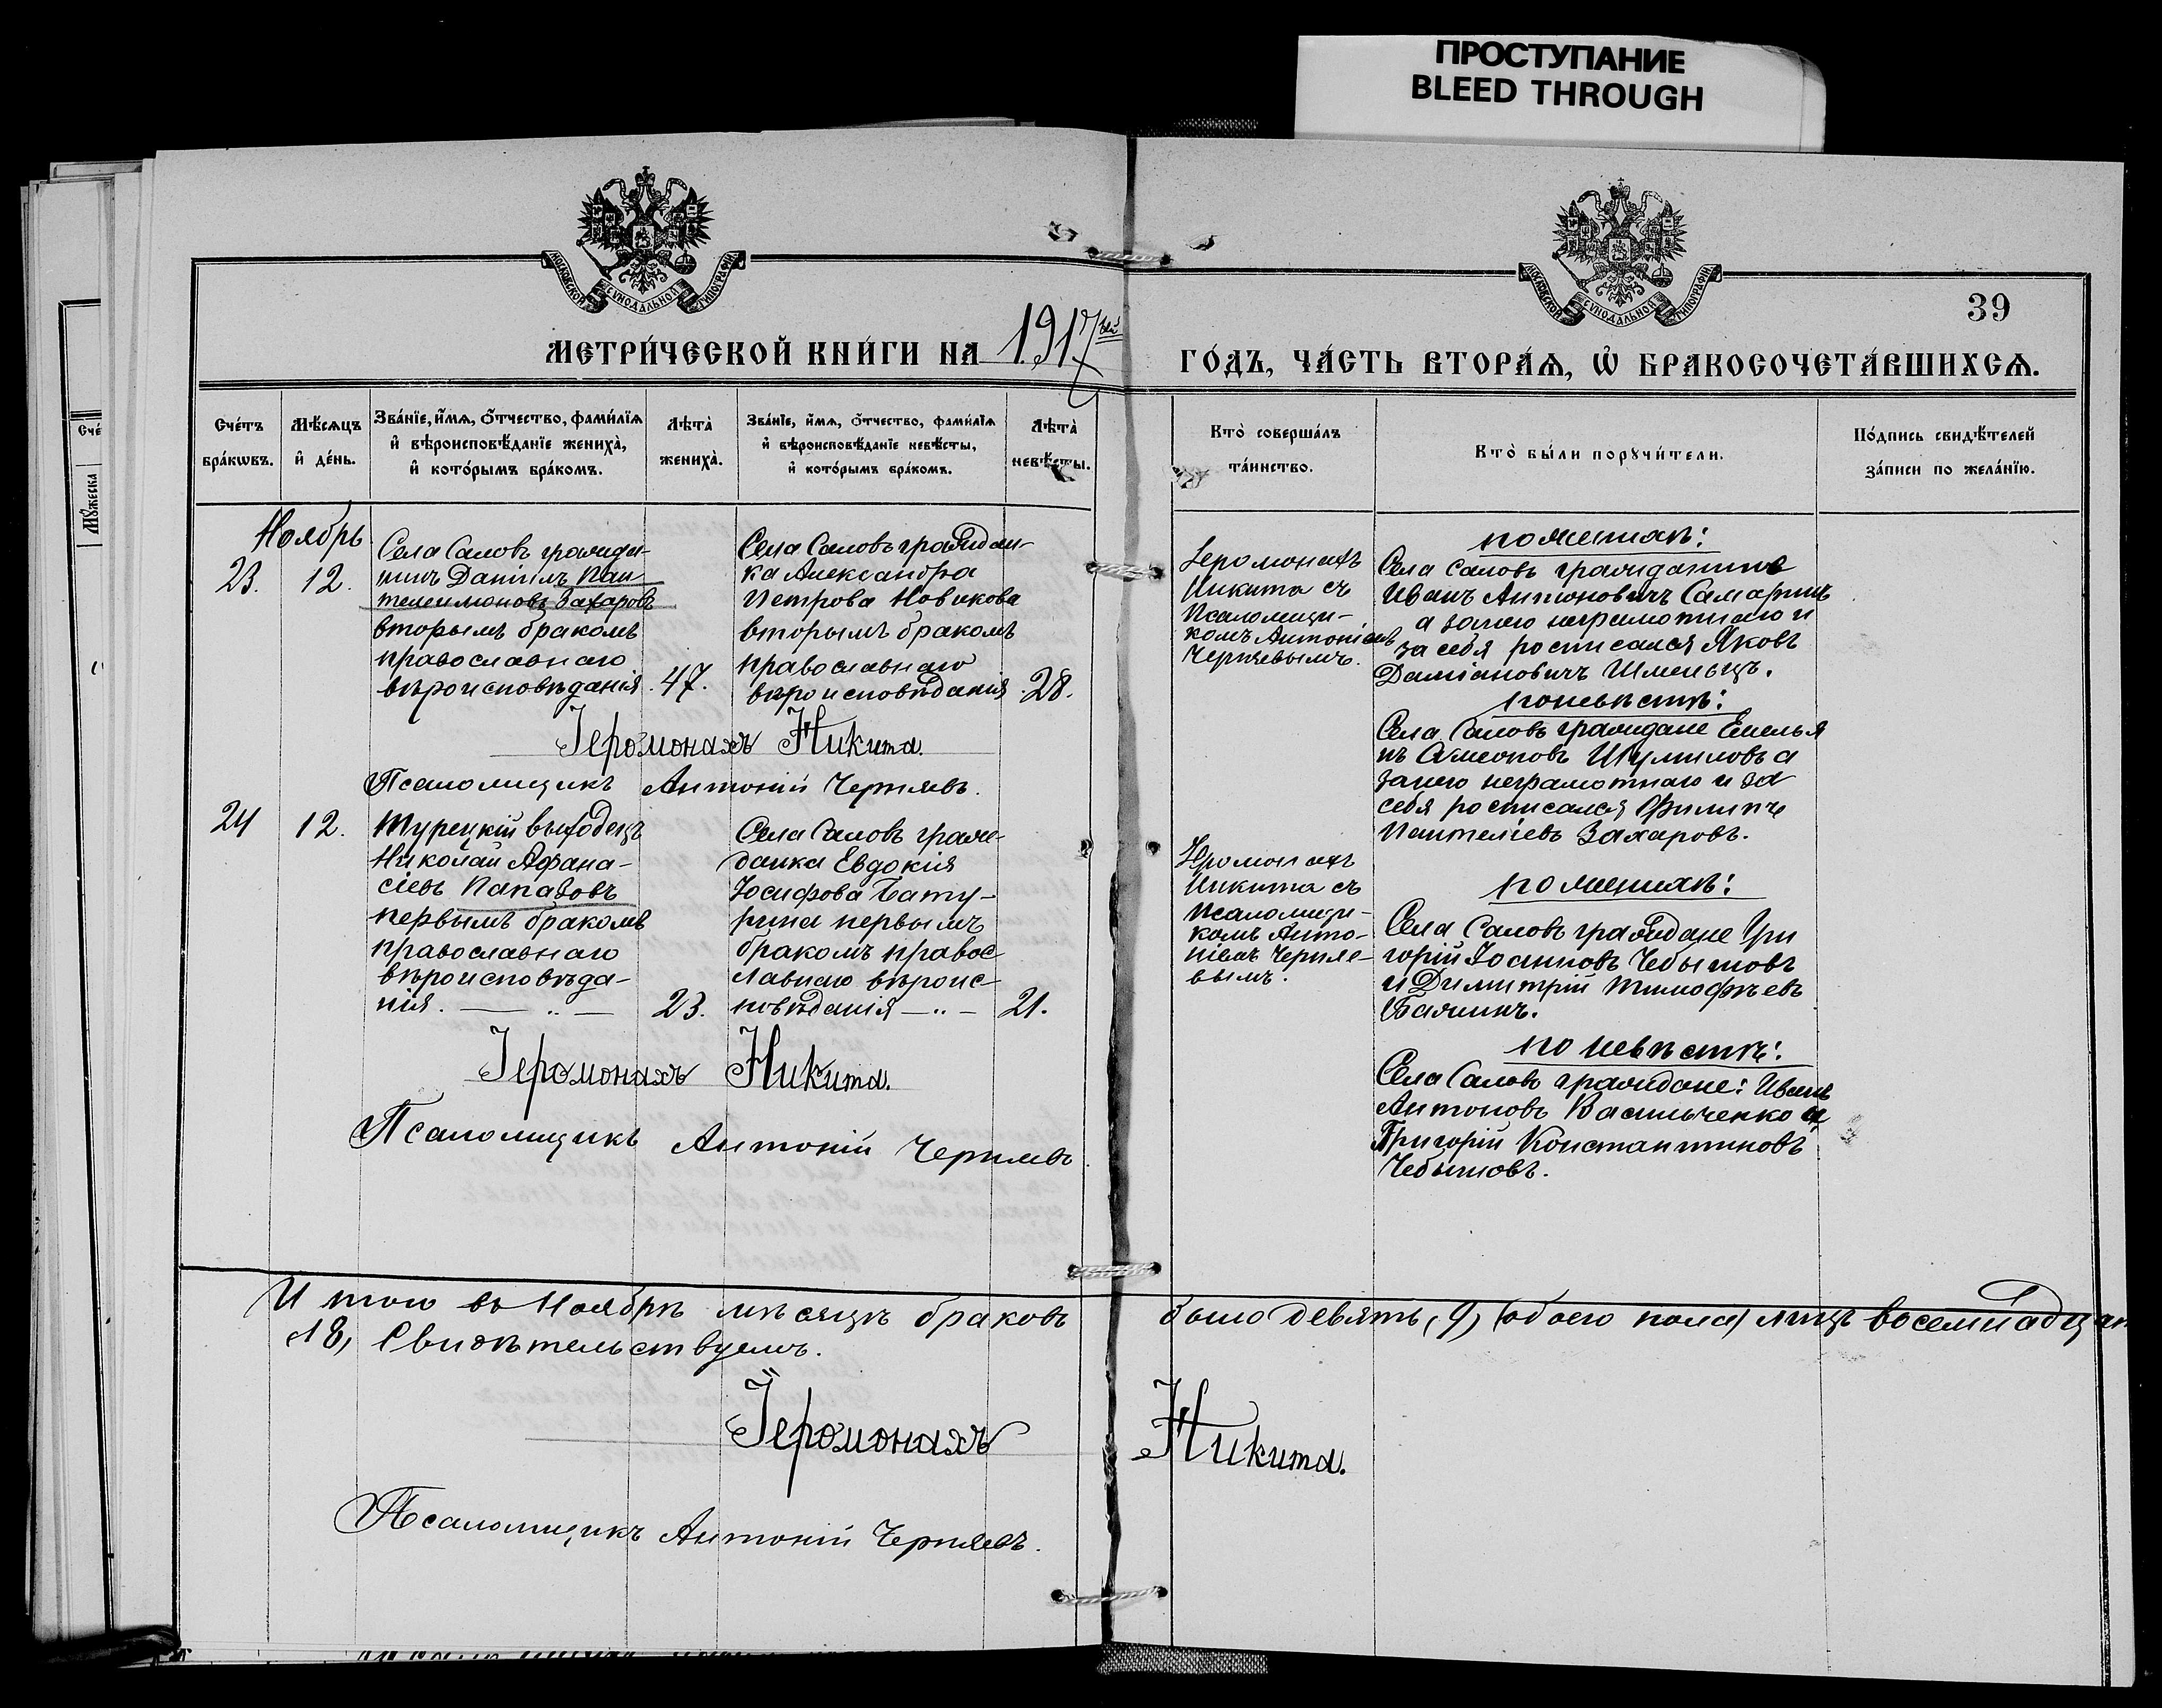 ПРОСТУПАНИЕ
BLEED THROUGH
МОСКОВСКОЙ СУНОДАЛЬНОЙ ТИПОГРАФІИ
МОСКОВСКОЙ СУНОДАЛЬНОЙ ТИПОГРАФІИ
39
МЕТРИ́ЧЕСКОЙ КНИ́ГИ НА 1917ый
ГО́ДЪ, ЧА́СТЬ ВТОРА́Ѧ, Ѽ БРАКОСОЧЕТА́ВШИХСѦ.
Сче́тъ
бра́кѡвъ.
Мѣ́сѧцъ
и҆ де́нь.
Зва́нїе, и҆́мѧ, ѻ҆́тчество, фами́лїѧ
и҆ вѣроисповѣ́данїе жениха̀,
и҆ кото́рымъ бра́комъ.
Лѣ́та̀
жениха̀.
Зва́нїе, и҆́мѧ, ѻ҆́тчество, фами́лїѧ
и҆ вѣроисповѣ́данїе невѣ́сты,
и҆ кото́рымъ бра́комъ.
Лѣ́та̀
невѣ́сты.
Кто̀ соверша́лъ
та́инство.
Кто̀ бы́ли порꙋчи́тели.
По́дпись свидѣ́телей
за́писи по жела́нїю.
Сче
Мꙋ́жеска
Ноябрь
23. 12.
Села Саловъ гражда-
нинъ Даніилъ Пан
телеимоновъ Захаровъ
вторымъ бракомъ
православнаго
вѣроисповѣданія. 47.
Села Саловъ граждан-
ка Александра
Петрова Новикова
вторымъ бракомъ
православнаго
вѣроисповѣданія. 28.
Іеромонахъ
Никита съ
Псаломщи-
комъ Антоніемъ
Черняевымъ.
по женихѣ:
Села Саловъ гражданинъ
Иванъ Антоновичъ Самаринъ
а за него неграмотнаго и
за себя росписался Яковъ
Даміановичъ
по невѣстѣ:
Села Саловъ граждане Емелья
нъ Симеоновъ Шумиловъ а
за него неграмотнаго и за
себя росписался Филиппъ
Пантеліевъ Захаровъ.
Іеромонахъ Никита.
Псаломщикъ Антоній Черняевъ.
24 12.
Турецкій выходецъ
Николай Афана-
сіевъ Папазовъ
первымъ бракомъ
православнаго
вѣроисповѣда-
нія. — „ — 23.
Села Саловъ граж-
данка Евдокія
Іосифова Бату-
рина первымъ
бракомъ правос
лавнаго вѣроис-
повѣданія — „ — 21.
Іеромонахъ
Никита съ
Псаломщи-
комъ Анто-
ніемъ Черняе-
вымъ.
по женихѣ:
Села Саловъ граждане Гри
горій Іоанновъ Чебытовъ
и Димитрій Тимофѣевъ
по невѣстѣ:
Села Саловъ граждане: Иванъ
Антоновъ Васильченко и
Григорій Константиновъ
Чебытовъ.
Іеромонахъ Никита.
Псаломщикъ Антоній Черняевъ.
Итого въ Ноябрѣ мѣсяцѣ браковъ было девять (9) (обоего пола) лицъ восемнадцать
(18) Свидѣтельствуемъ.
Іеромонахъ Никита.
Псаломщикъ Антоній Черняевъ.